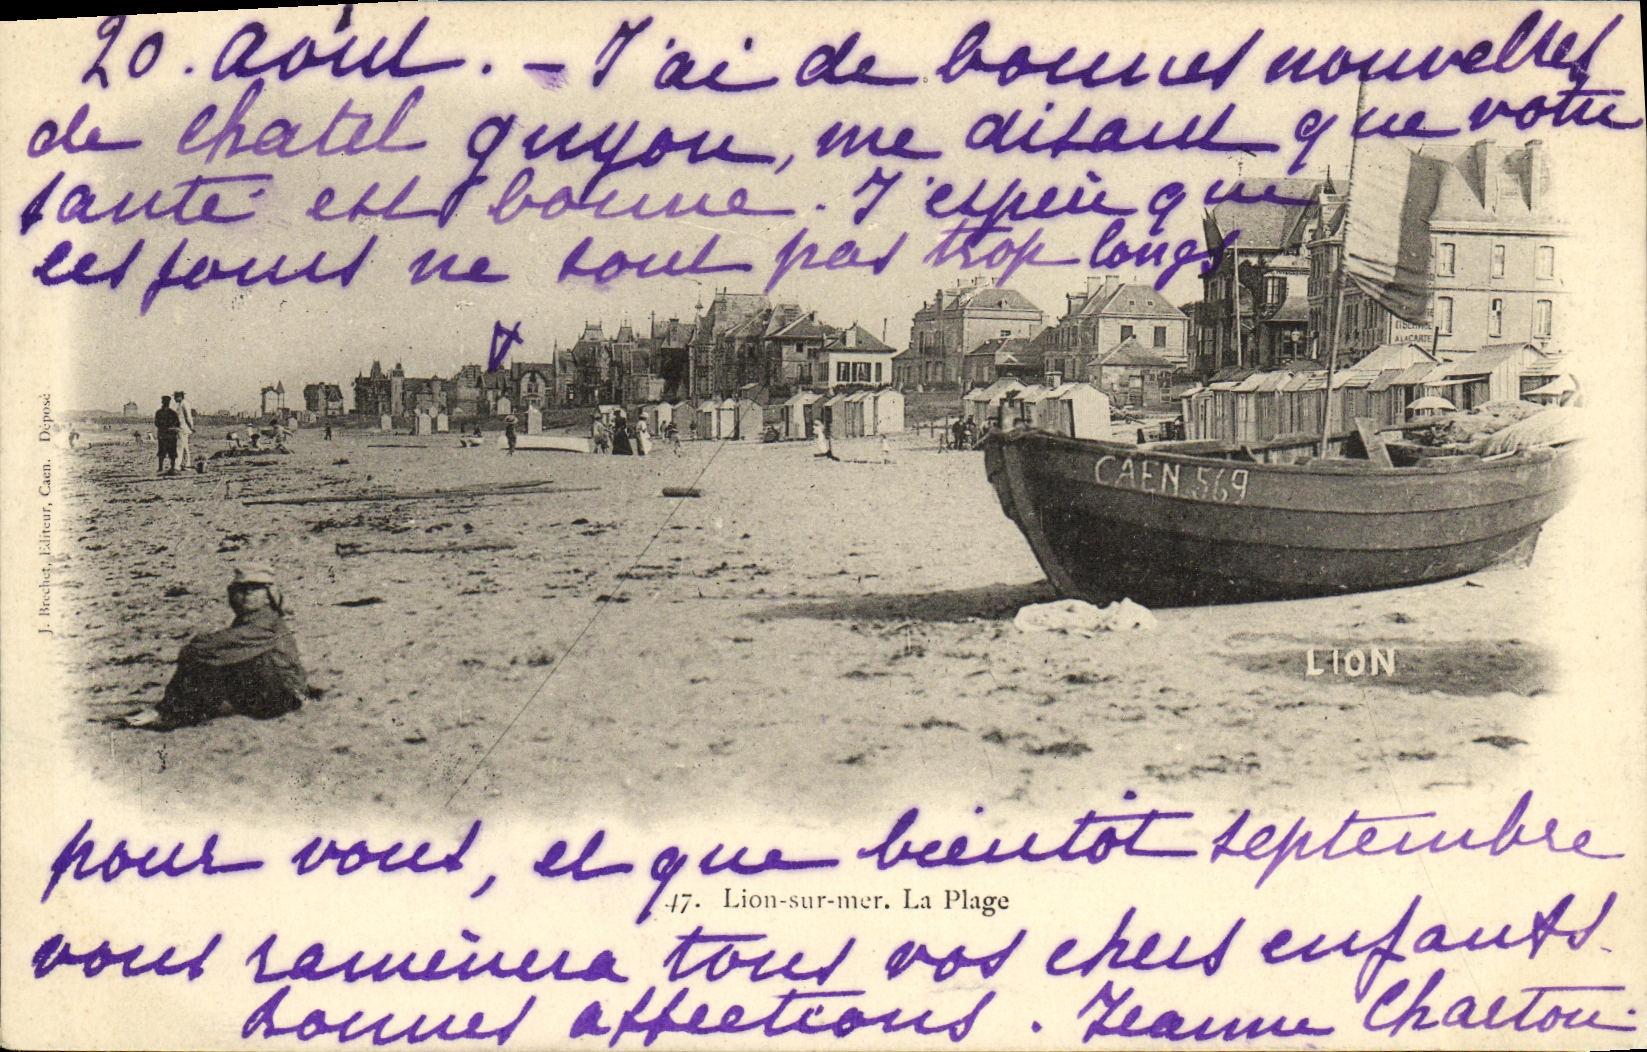 20. août. - J'ai de bonnes nouvelles
de Chatel guyon, me disant que votre
santé est bonne. J'espère que
les jours ne sont pas trop longs
A LA CARTE
CAEN 569
LION
J. Brechet, Editeur, Caen. Déposé
pour vous, et que bientôt septembre
47. Lion-sur-mer. La Plage
vous ramènera tous vos chers enfants.
Bonnes affections. Jeanne Charton.